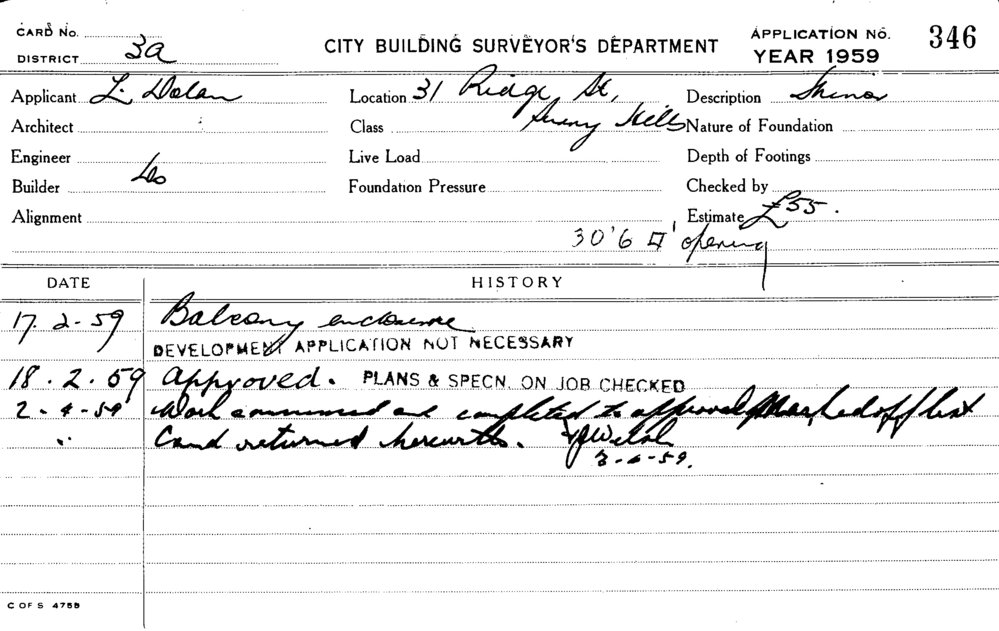 CARD No.
DISTRICT 3a
CITY BUILDING SURVEYOR'S DEPARTMENT
APPLICATION NO. 346
YEAR 1959
Applicant L. Dolan
Location 31 Ridge St,
Description Minor
Architect
Class Surry Hills
Nature of Foundation
Engineer
Live Load
Depth of Footings
Builder Do
Foundation Pressure
Checked by
Alignment
Estimate £55.
30'6 □' opening
DATE HISTORY
17.2-59 Balcony enclosure
DEVELOPMENT APPLICATION NOT NECESSARY
18.2.59 Approved. PLANS & SPECN. ON JOB CHECKED
2-4-59 Work commenced and completed to approval plan, marked off list
" Card returned herewith. Welsh
3-4-59.
C OF S 4758